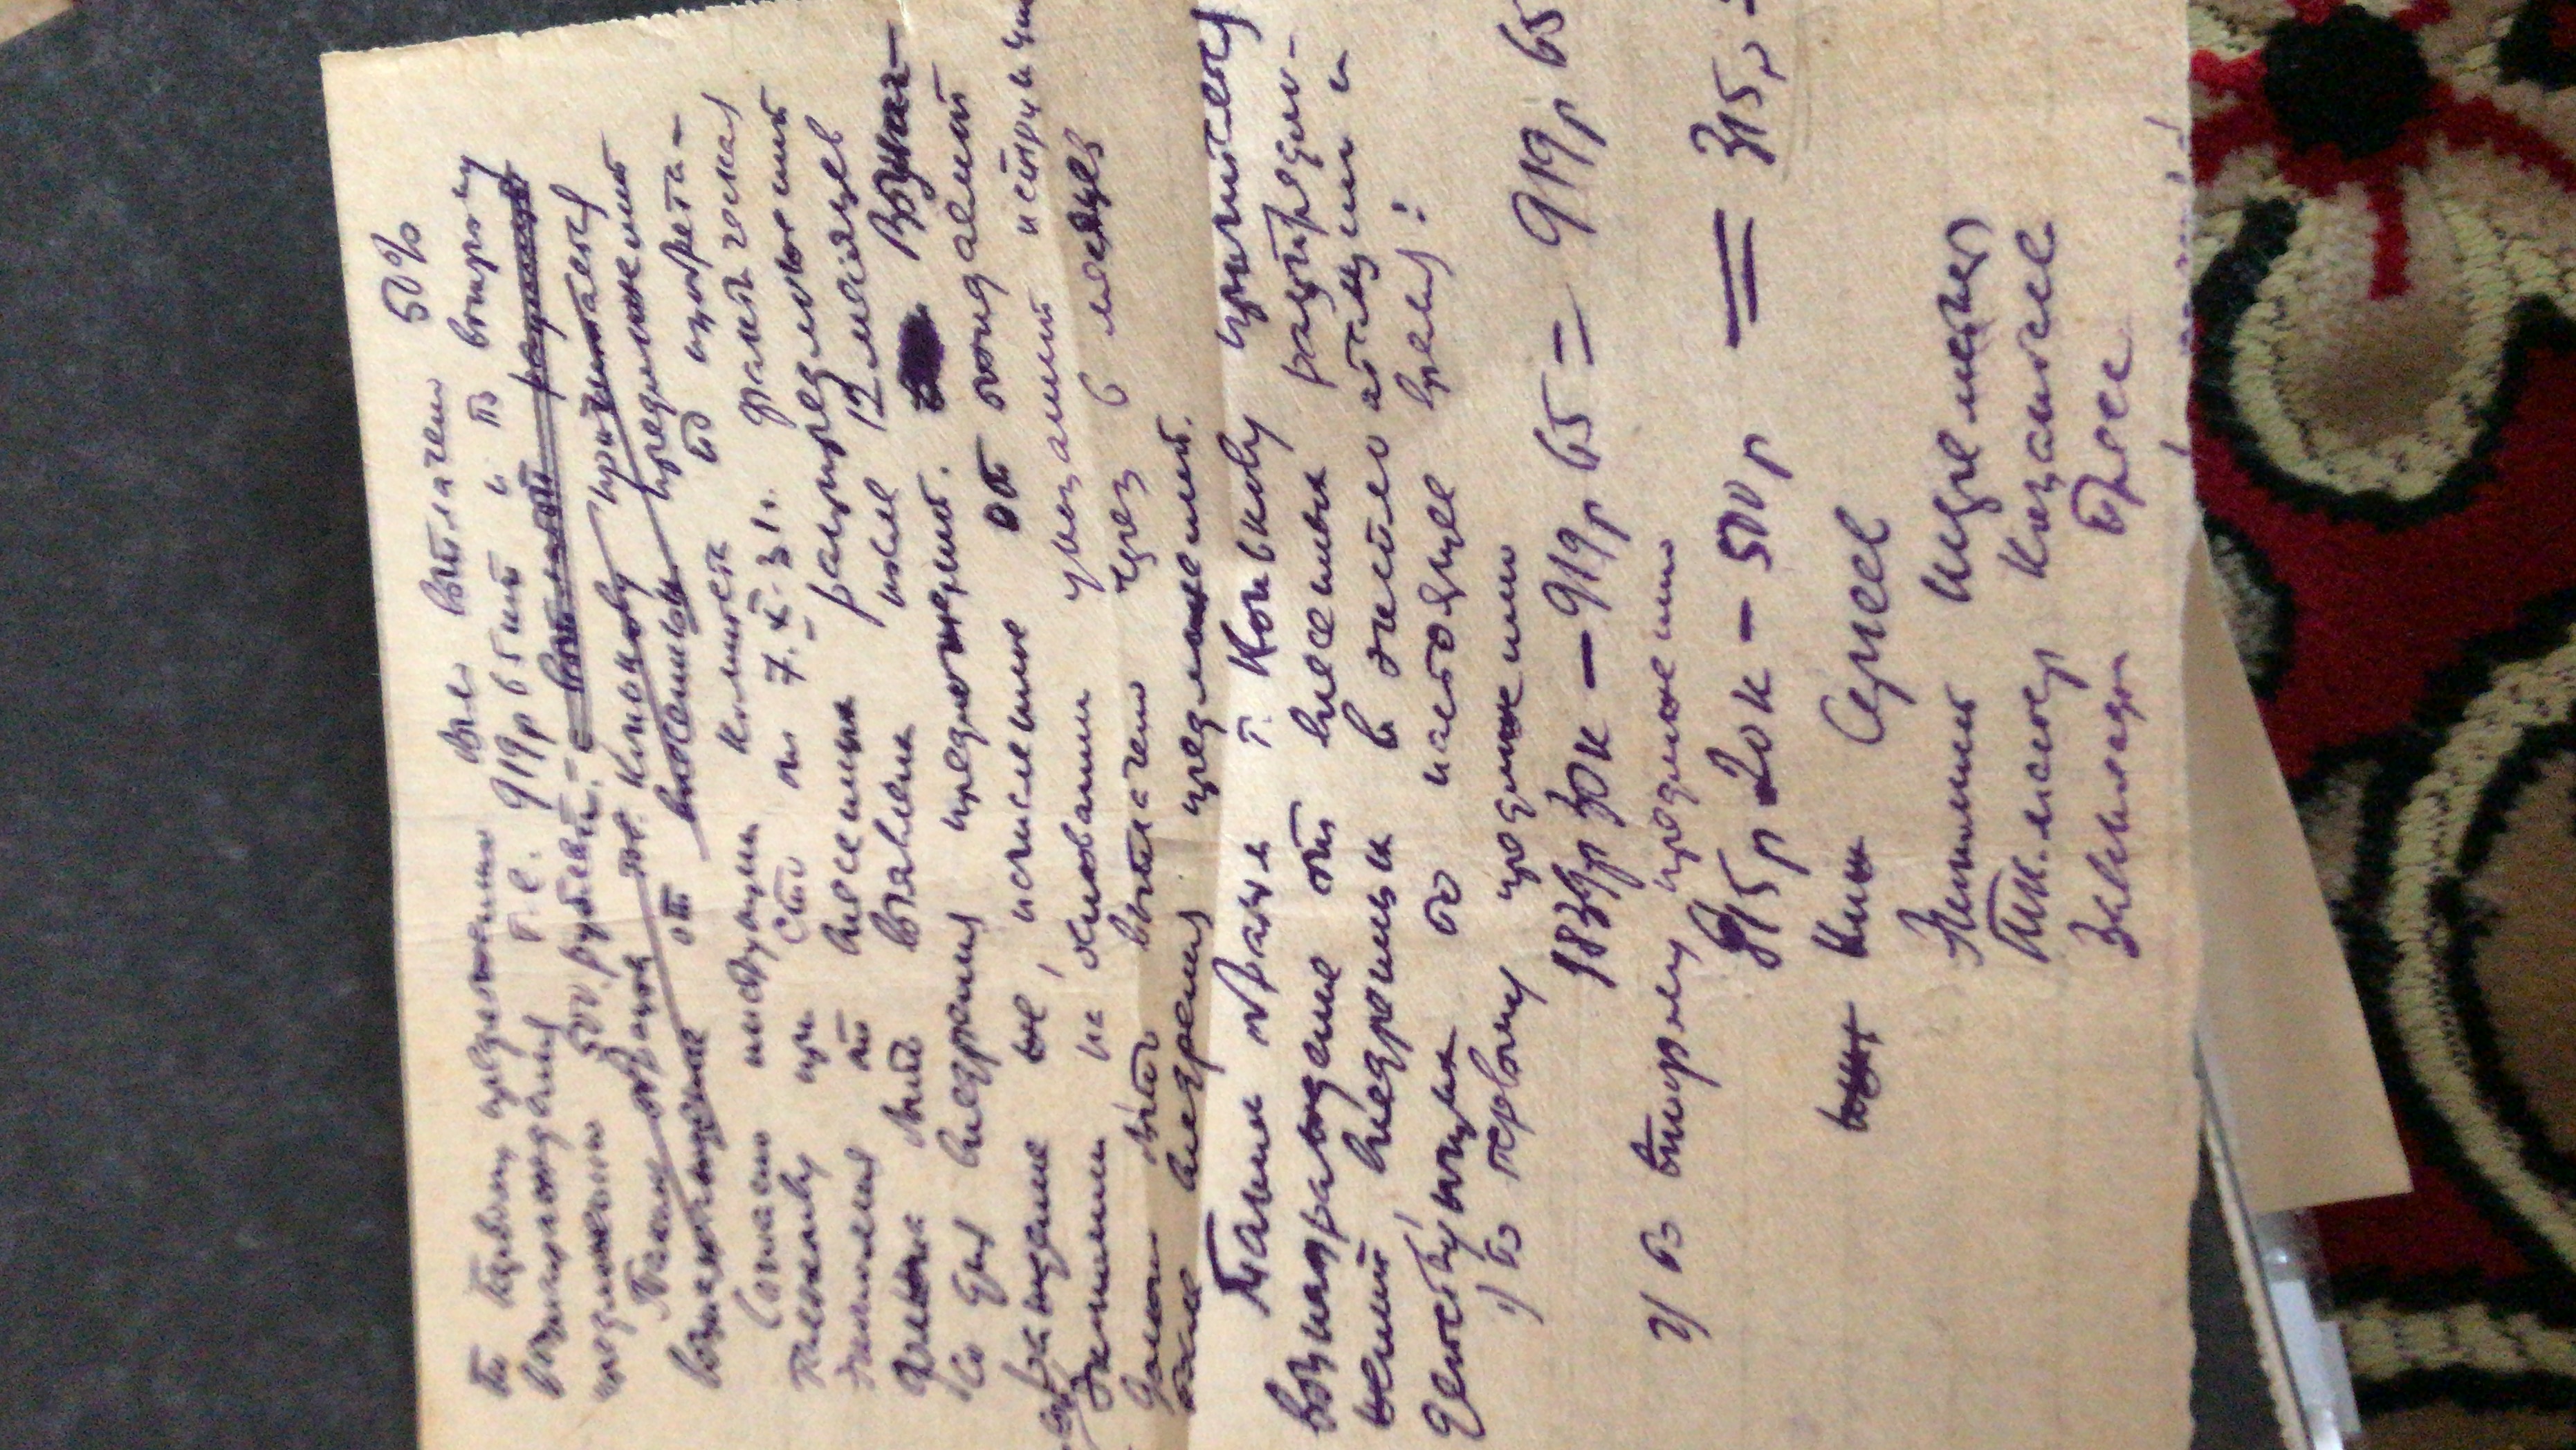 По первому предложению было выплачено 50%
вознаграждения т.е. 919р 65коп и по второму
предложению 500 рублей. с выплатой разницы
Таким образом тов. Конькову причитается
вознаграждение от внесенных предложений
Согласно инструкции Комитета по изобрета-
тельству при СТО от 7.X.31г. фактическая
экономия от внесенных рацпредложений
должна быть выявлена после 12 месяцев
со дня внедрения предложений. Вознаг-
раждение же, исчисленное от ожидаемой
экономии, на основании указанной иструкции
должно быть выплачено через 6 месяцев
после внедрения предложений.
Таким образом т. Конькову причитается
вознаграждение от внесенных рацпредло-
жений, внедренных в эксплоатацию и
действующих по настоящее время:
1) По первому предложению
1839р 30к — 919р 65 = 919р 65
2) По второму предложению
815р 20к — 500р = 315р
Инж Сергеев
Экономист
Тк. мастер Казанцев
Завскладом Пресс